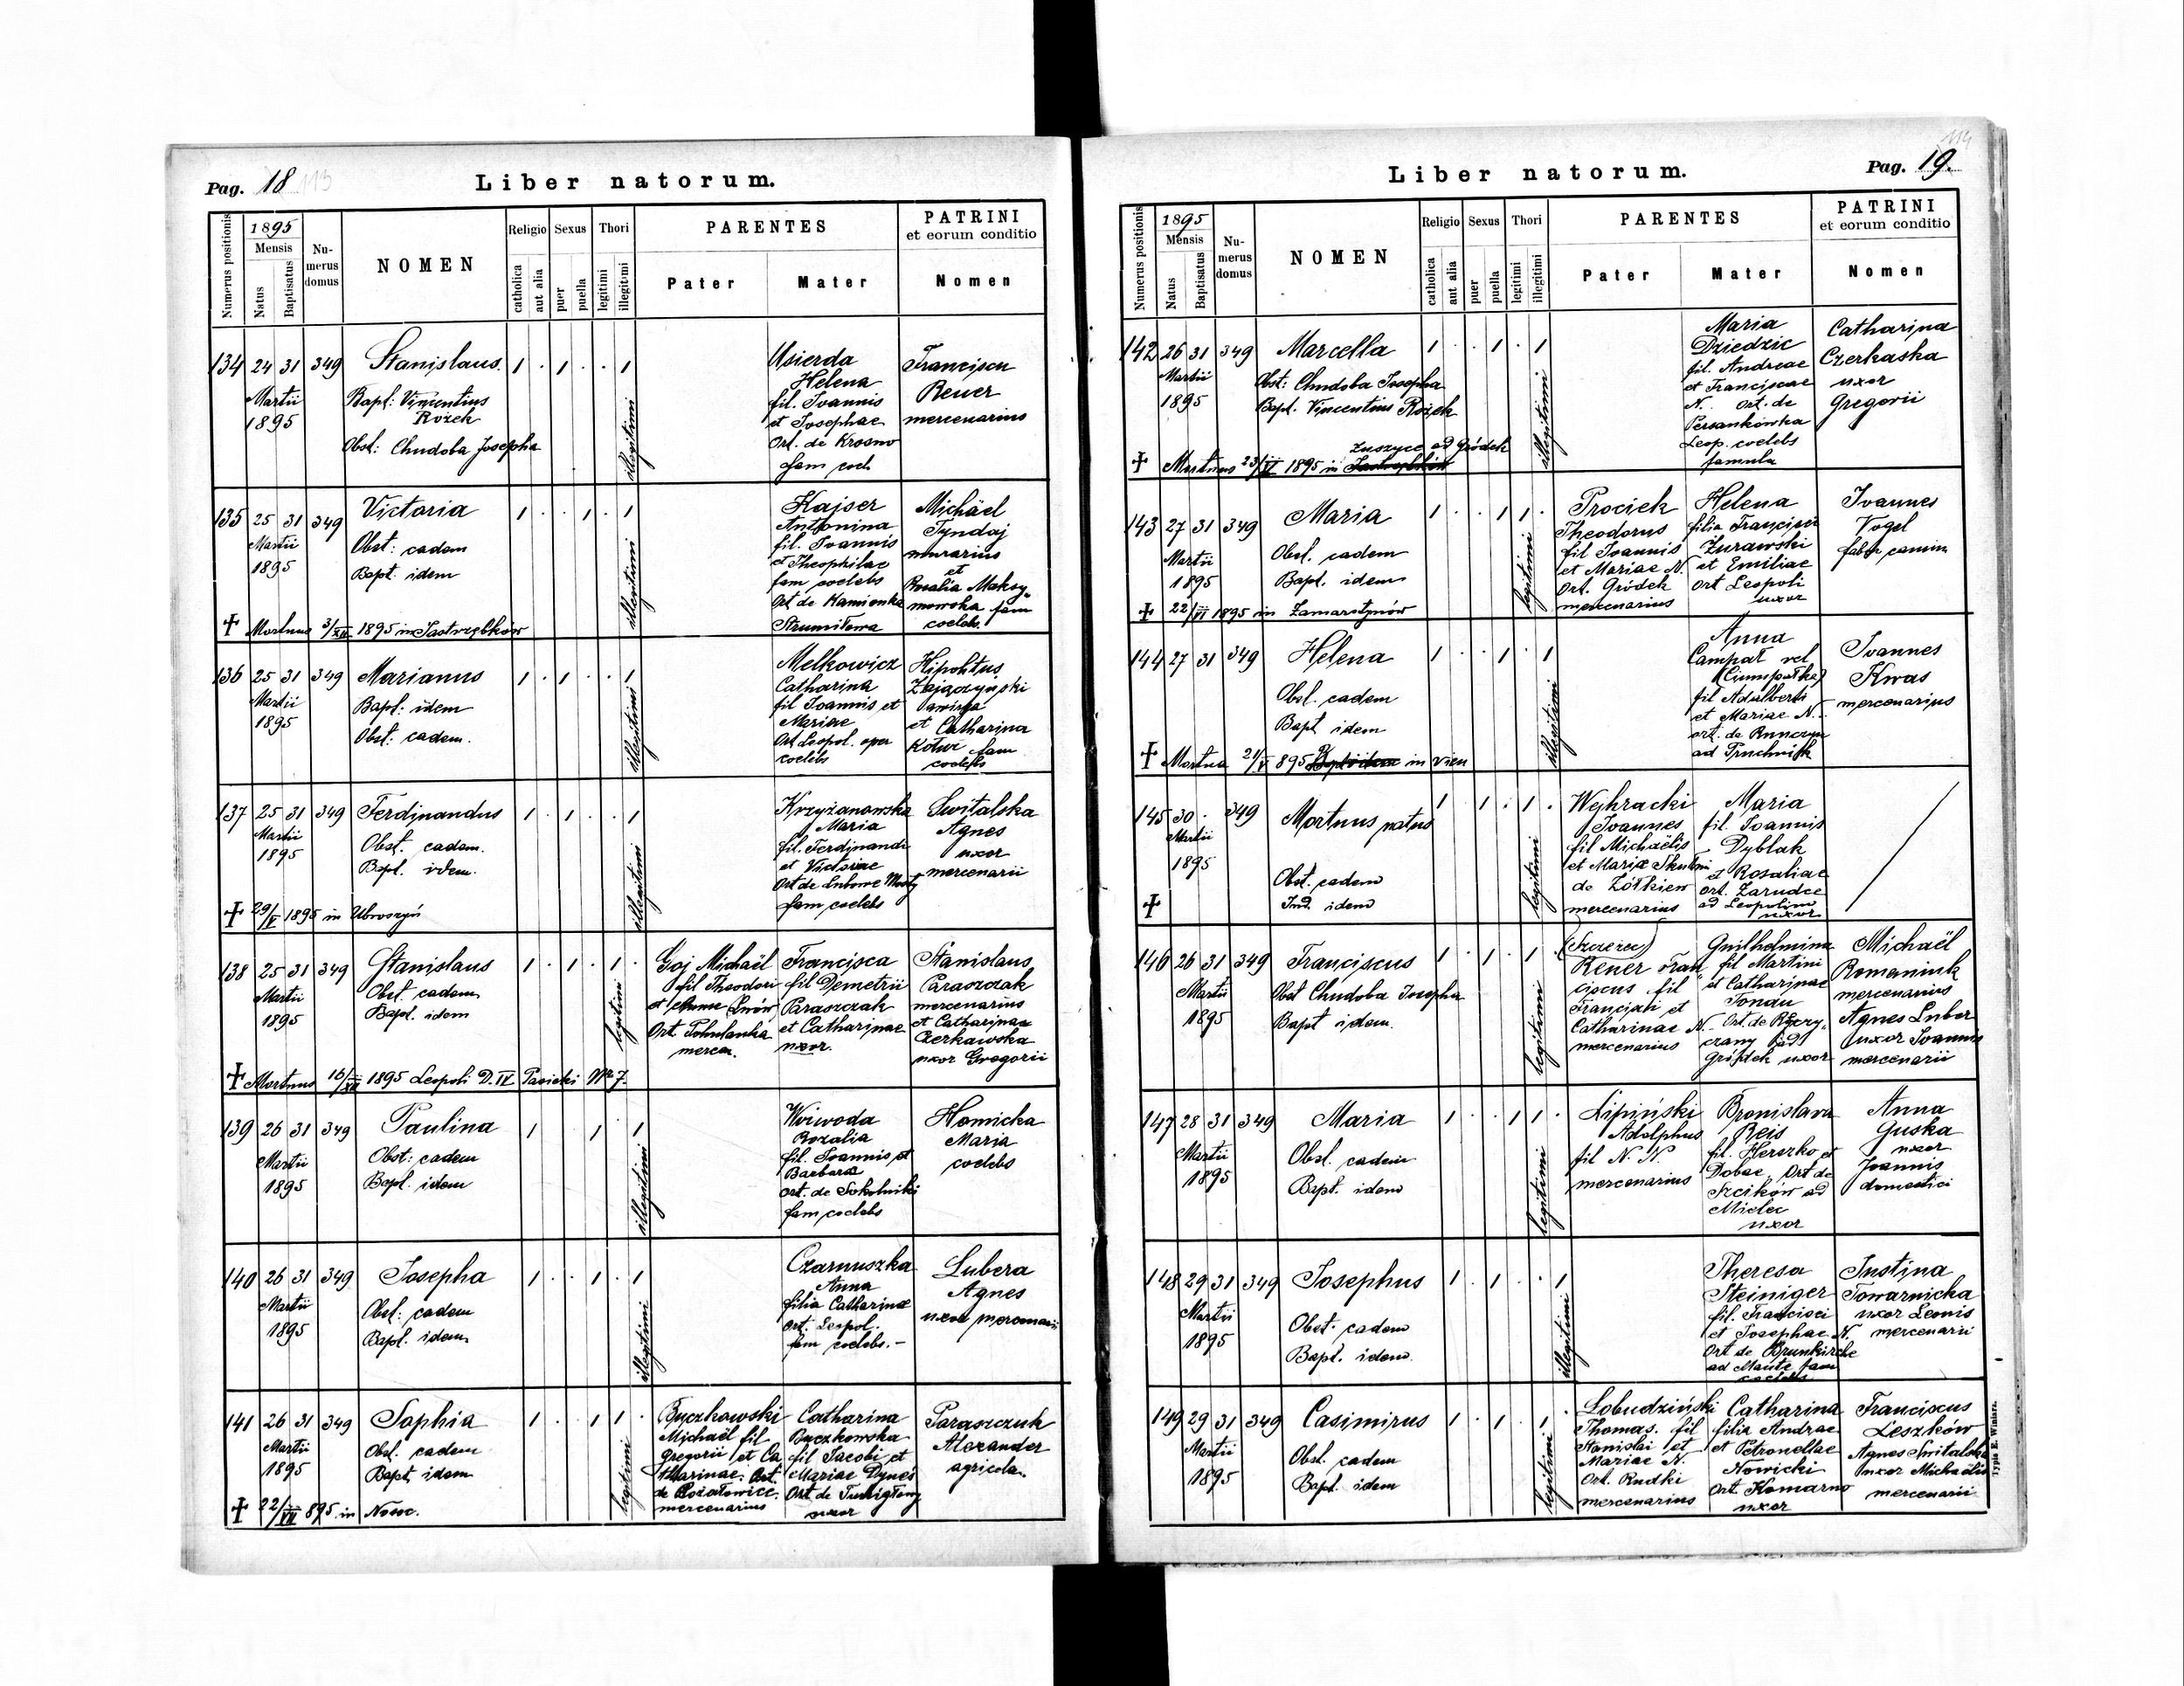 Pag. 18
Liber natorum.
Numerus positionis
1895
Mensis
Natus
Baptisatus
Nu-
merus
domus
NOMEN
Religio
catholica
aut alia
Sexus
puer
puella
Thori
legitimi
illegitimi
PARENTES
Pater
Mater
PATRINI
et eorum conditio
Nomen
134 24 31 349 Stanislaus 1 · 1 · · 1
Martii
1895
Bapt: Vincentius
Rożek
Obst: Chudoba Josepha
illegitimi
Usierda
Helena
fil. Joannis
et Josephae
Ort. de Krosno
fam coel
Franciscu
Reuer
mercenarius
135 25 31 349 Victoria 1 · · 1 · 1
Martii
1895
Obst: eadem
Bapt. idem
illegitimi
Kajser
Antonina
fil. Joannis
et Theophilae
fam coelebs
Ort de Kamionka
Strumiłowa
Michäel
Tyndaj
murarius
et
Rosalia Maksy-
mowska fam
coelebs.
✝ Mortuus 3/XII 1895 in Jastrzębków
136 25 31 349 Marianus 1 · 1 · · 1
Martii
1895
Bapt: idem
Obst: eadem.
illegitimi
Melkowicz
Catharina
fil Joannis et
Mariae
Ort Leopol. oper
coelebs
Zajączyński
et Catharina
Kotur fam
coelebs
137 25 31 349 Ferdinandus 1 · 1 · · 1
Martii
1895
Obst. eadem.
Bapt. idem.
illegitimi
Krzyżanowska
Maria
fil. Ferdinandi
et Victoriae
Ort de
fam coelebs
Switalska
Agnes
uxor
mercenarii
✝ 29/V 1895 in
138 25 31 349 Stanislaus 1 · 1 · 1 ·
Martii
1895
Obst. eadem
Bapt. idem
legitimi
Goj Michaël
fil Theodori
et Annae
Ort. Pohulanka
mercen.
Francisca
fil Demetrii
Paraszczak
et Catharinae
uxor.
Stanislaus
Paraszczak
mercenarius
et Catharina
Czerkawska
uxor Gregorii
✝ Mortuus 16/XII 1895 Leopoli D. IV Pasieki Nr 7.
139 26 31 349 Paulina 1 1 · 1
Martii
1895
Obst: eadem
Bapt. idem
illegitimi
Woiwoda
Rozalia
fil. Joannis et
Barbara
ort. de Sokolniki
fam coelebs
Homicka
Maria
coelebs
140 26 31 349 Josepha 1 · · 1 · 1
Martii
1895
Obst: eadem
Bapt. idem
illegitimi
Czarnuszka
Anna
filia Catharinae
Ort. Leopol.
fam coelebs. –
Lubera
Agnes
uxor
141 26 31 349 Sophia 1 · 1 1 ·
Martii
1895
Obst. eadem
Bapt. idem
legitimi
Buczkowski
Michaël fil
Gregorii et Ca
tharinae. Ort.
de
mercenarius
Catharina
Buczkowska
fil Jacobi et
Mariae
Ort de
uxor
Paraszczuk
Alexander
agricola.
✝ 22/VII 895 in
Pag. 19.
114
Liber natorum.
Numerus positionis
1895
Mensis
Natus
Baptisatus
Nu-
merus
domus
NOMEN
Religio
catholica
aut alia
Sexus
puer
puella
Thori
legitimi
illegitimi
PARENTES
Pater
Mater
PATRINI
et eorum conditio
Nomen
142 26 31 349 Marcella 1 · · 1 · 1
Martii
1895
Obst: Chudoba Josepha
Bapt. Vincentius Rożek
illegitimi
Maria
Dziedzic
fil. Andreae
et Franciscae
N. ort. de
Persenkówka
Leop. coelebs
famula
Catharina
Czerkaska
uxor
Gregorii
Zuszyce ad Gródek
✝ Mortuus 23/IV 1895 in
143 27 31 349 Maria 1 · · 1 1 ·
Martii
1895
Obst. eadem
Bapt. idem
legitimi
Prociek
Theodorus
fil Joannis
et Mariae N.
Ort. Gródek
mercenarius
Helena
filia Francisci
Żurawski
et Emiliae
ort Leopoli
uxor
Joannes
Vogel
✝ 22/VI 1895 in Zamarstynów
144 27 31 349 Helena 1 · · 1 · 1
Obst. eadem
Bapt idem
illegitimi
Anna
Campał vel
fil Adalberti
et Mariae N.
ort. de
ad Pruchnik
Joannes
Kwas
mercenarius
✝ Mortua 21/V 895 in
145 30 · 349 Mortuus natus 1 · 1 · 1 ·
Martii
1895
Obst. eadem
Ind. idem
legitimi
Wyhracki
Joannes
fil Michaëlis
et Mariae
de Żółkiew
mercenarius
Maria
fil. Joannis
Dyblak
et Rosaliae
ort. Zarudce
ad Leopolim
uxor
✝
146 26 31 349 Franciscus 1 · 1 · 1 ·
Martii
1895
Obst Chudoba Josepha
Bapt idem.
legitimi
Reuer Fran
ciscus fil
Francisci et
Catharinae N.
mercenarius
Guilhelmina
fil Martini
et Catharinae
Jonau
Ort. de Rzeczy-
czany ad
Gródek uxor
Michaël
Romaniuk
mercenarius
Agnes Luber
uxor Joannis
mercenarii
147 28 31 349 Maria 1 · · 1 1 ·
Martii
1895
Obst. eadem
Bapt. idem
legitimi
Lipiński
Adolphus
fil N. N.
mercenarius
Bronislava
Reis
fil. Herszko et
Dobae, Ort de
ad
Mielec
uxor
Anna
Guska
uxor
Joannis
domestici
148 29 31 349 Josephus 1 · 1 · · 1
Martii
1895
Obst. eadem
Bapt. idem.
illegitimi
Theresa
Steiniger
fil. Francisci
et Josephae N.
Ort de Brunkirche
ad Maute fam
coelebs
Justina
Towarnicka
uxor Leonis
mercenarii
149 29 31 349 Casimirus 1 · 1 · 1 ·
Martii
1895
Obst. eadem
Bapt. idem
legitimi
Lobudziński
Thomas. fil
Stanislai et
Mariae N.
Ort. Rudki
mercenarius
Catharina
filia Andrae
et Petronellae
Nowicki
Ort Komarno
uxor
Franciscus
Leszków
Agnes Switalska
uxor Michaëlis
mercenarii
Typis E. Winiarz.